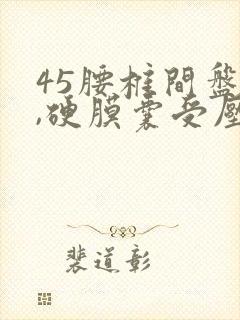 45腰椎間盤
,硬膜囊受壓
裴道彰